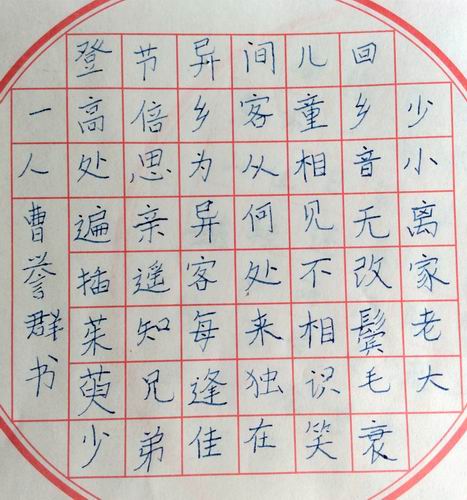 少小离家老大
回乡音无改鬓毛衰
儿童相见不相识笑
间客从何处来独在
异乡为异客每逢佳
节倍思亲遥知兄弟
登高处遍插茱萸少
一人曹誉群书